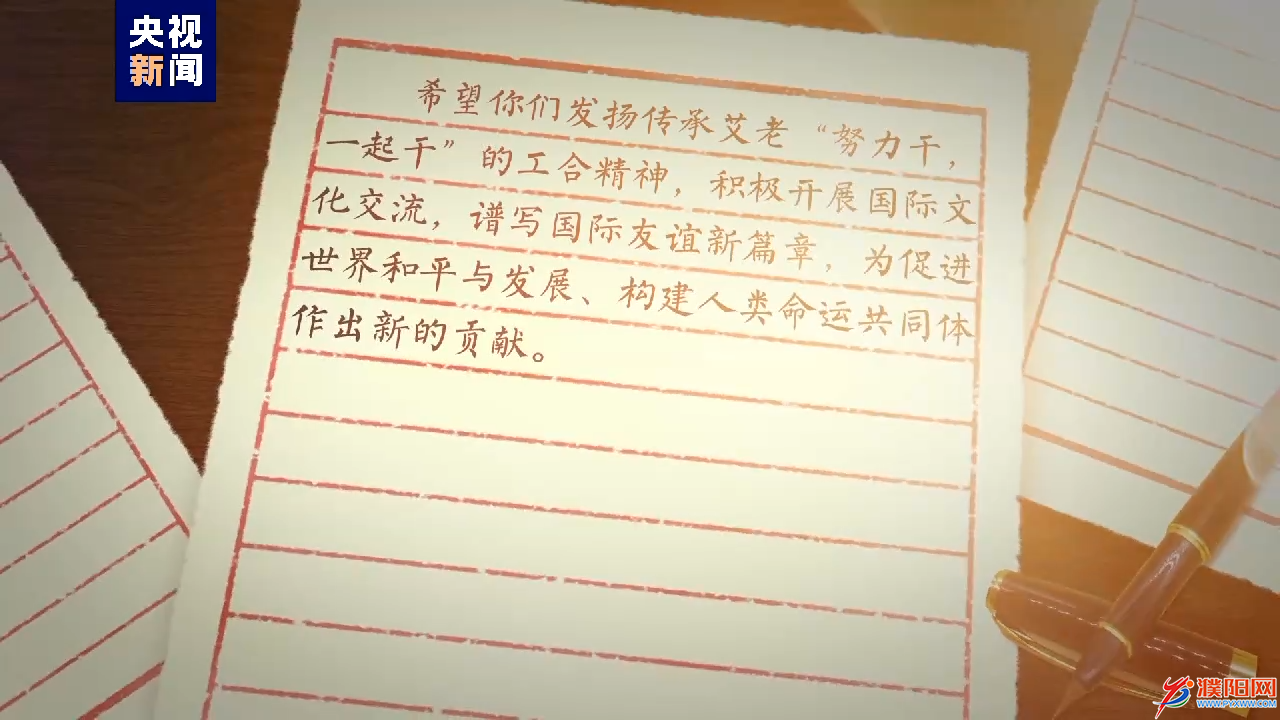 央视
新闻
希望你们发扬传承艾老“努力干，
一起干”的工合精神，积极开展国际文
化交流，谱写国际友谊新篇章，为促进
世界和平与发展、构建人类命运共同体
作出新的贡献。
濮阳网
WWW.PYXWW.COM